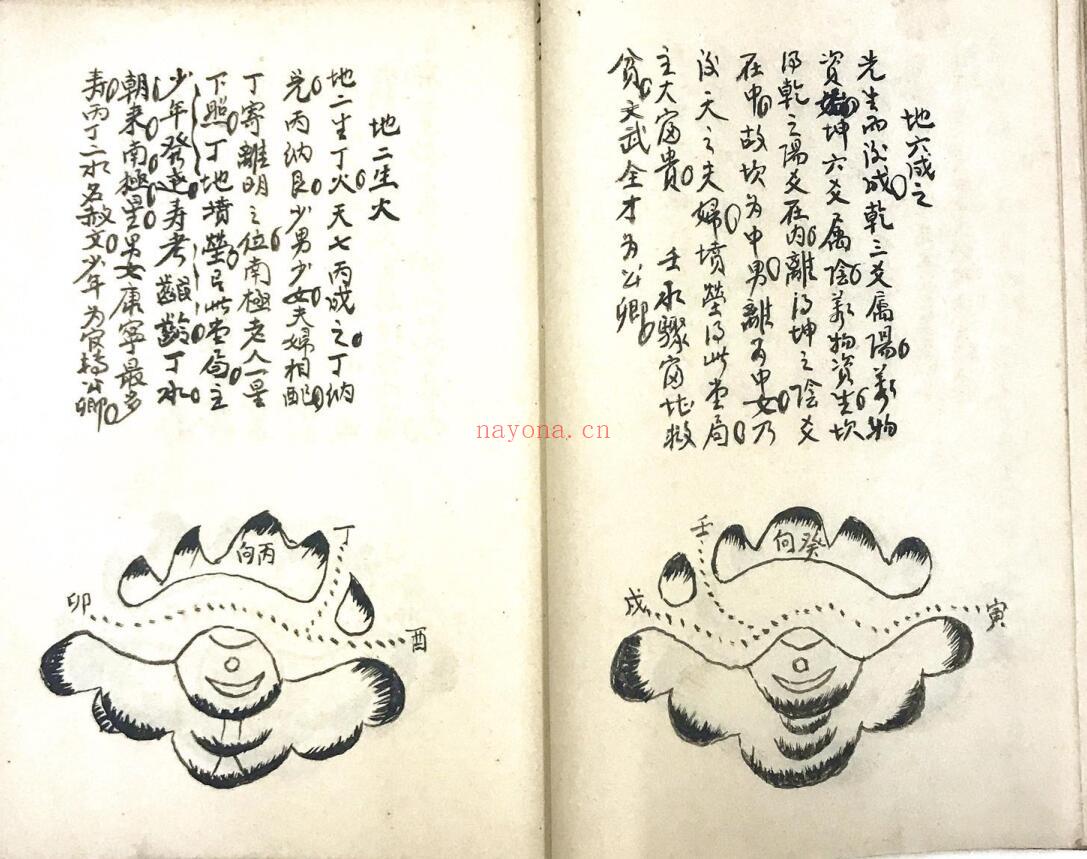 地六成之
先生而后成乾三爻属陽萬物
資始坤六爻属陰萬物資生坎
得乾之陽爻在内離得坤之陰爻
在中故坎為中男離為中女乃
後天之夫婦墳塋得此堂局
主大富貴 壬水驟富比救
貧文武全才為公卿
癸向
壬
戌
寅
地二生火
地二生丁火天七丙成之丁納
兑丙納艮少男少女夫婦相配
丁寄離明之位南極老人一星
下照丁地墳塋得此堂局主
少年發達寿考 齡丁水
朝来南極星男女康寧最多
寿丙丁二水名赦文少年為官 公卿
丙向
丁
卯
酉
nayona.cn